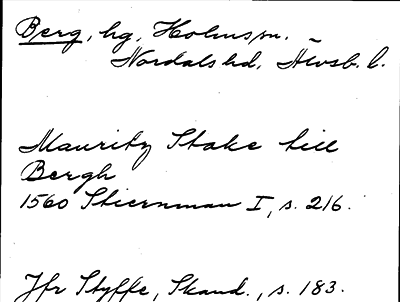 Berg, hg, Holms sn. –
Nordals hd. Älvsb. l.
Mauritz Stake till
Bergh
1560 Stiernman I, s. 216.
Jfr Styffe, Skand., s. 183.